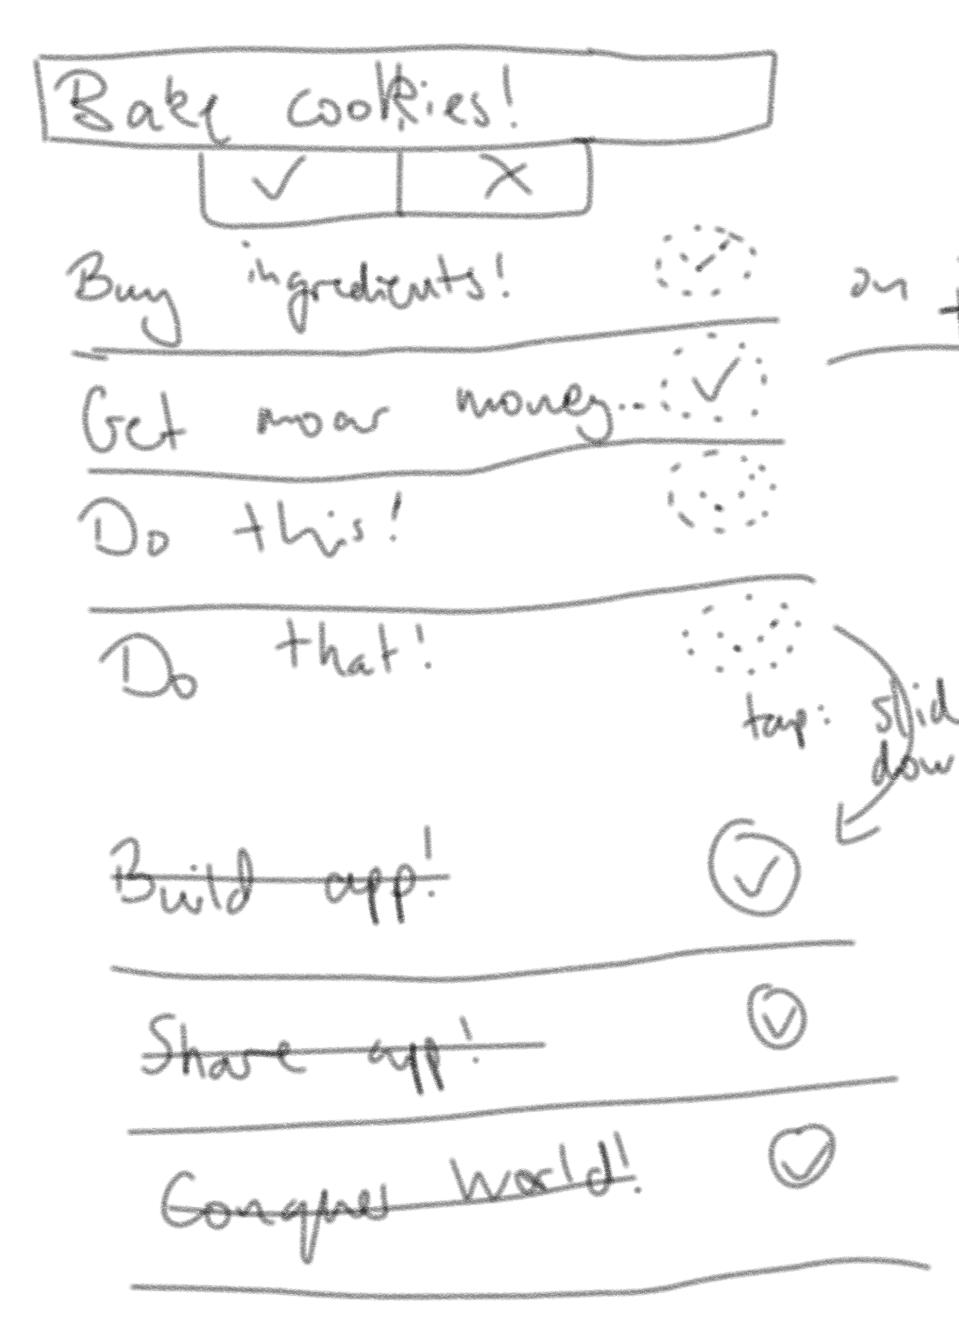 Bake cookies!
Buy ingredients!
on
Get moar money...
Do this!
Do that!
tap: slid
dow
Build app!
Share app!
Conquer World!